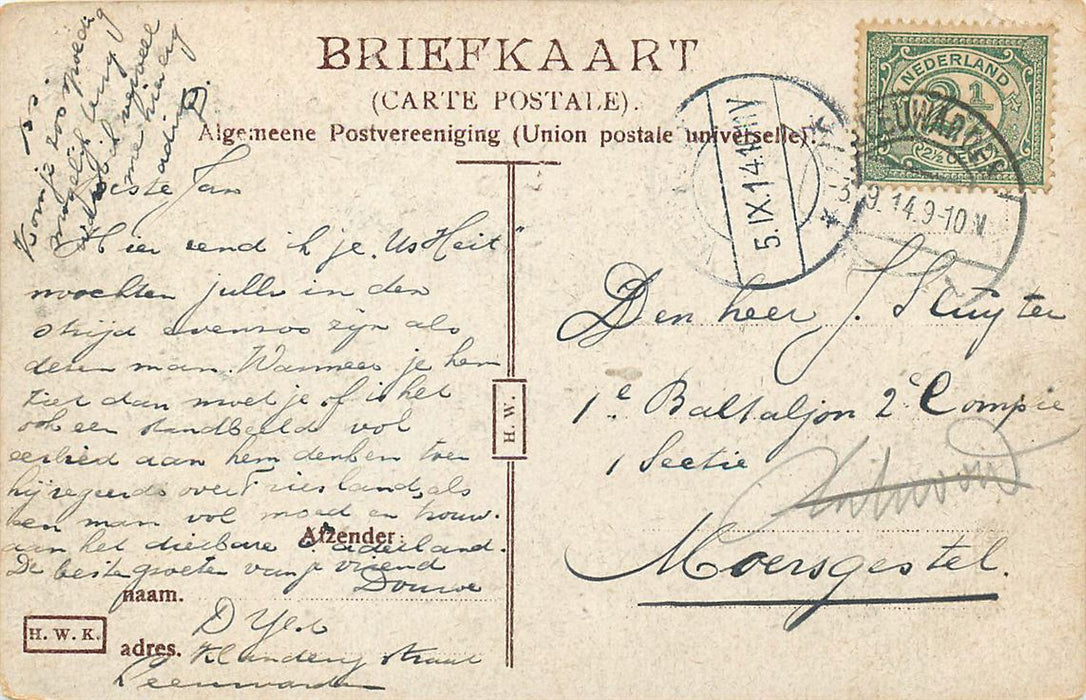 BRIEFKAART
(CARTE POSTALE).
Algemeene Postvereeniging (Union postale universelle).
NEDERLAND
2½
2½ CENT
LEEUWARDEN
-3.9.14.9-10 N
5.IX.14.
P.S.
Kom je zoo spoedig
mogelijk
me
D.
Beste Jan
Hier zend ik je "Us Heit"
mochten jullie in den
strijd evenzoo zijn als
deze man. Wanneer je hem
ziet dan moet je of is het
ook een standbeeld vol
eerbied aan hem denken toen
hij regeerde over Friesland, als
een man vol moed en trouw.
aan het dierbare Vaderland.
De beste groeten van je vriend
Douwe
Afzender:
naam.
D
adres.
straat
Leeuwarden
H. W. K.
H. W.
Den heer J. Sluyter
1e Battaljon 2e Compie
1 Sectie
Antwoord
Moergestel.